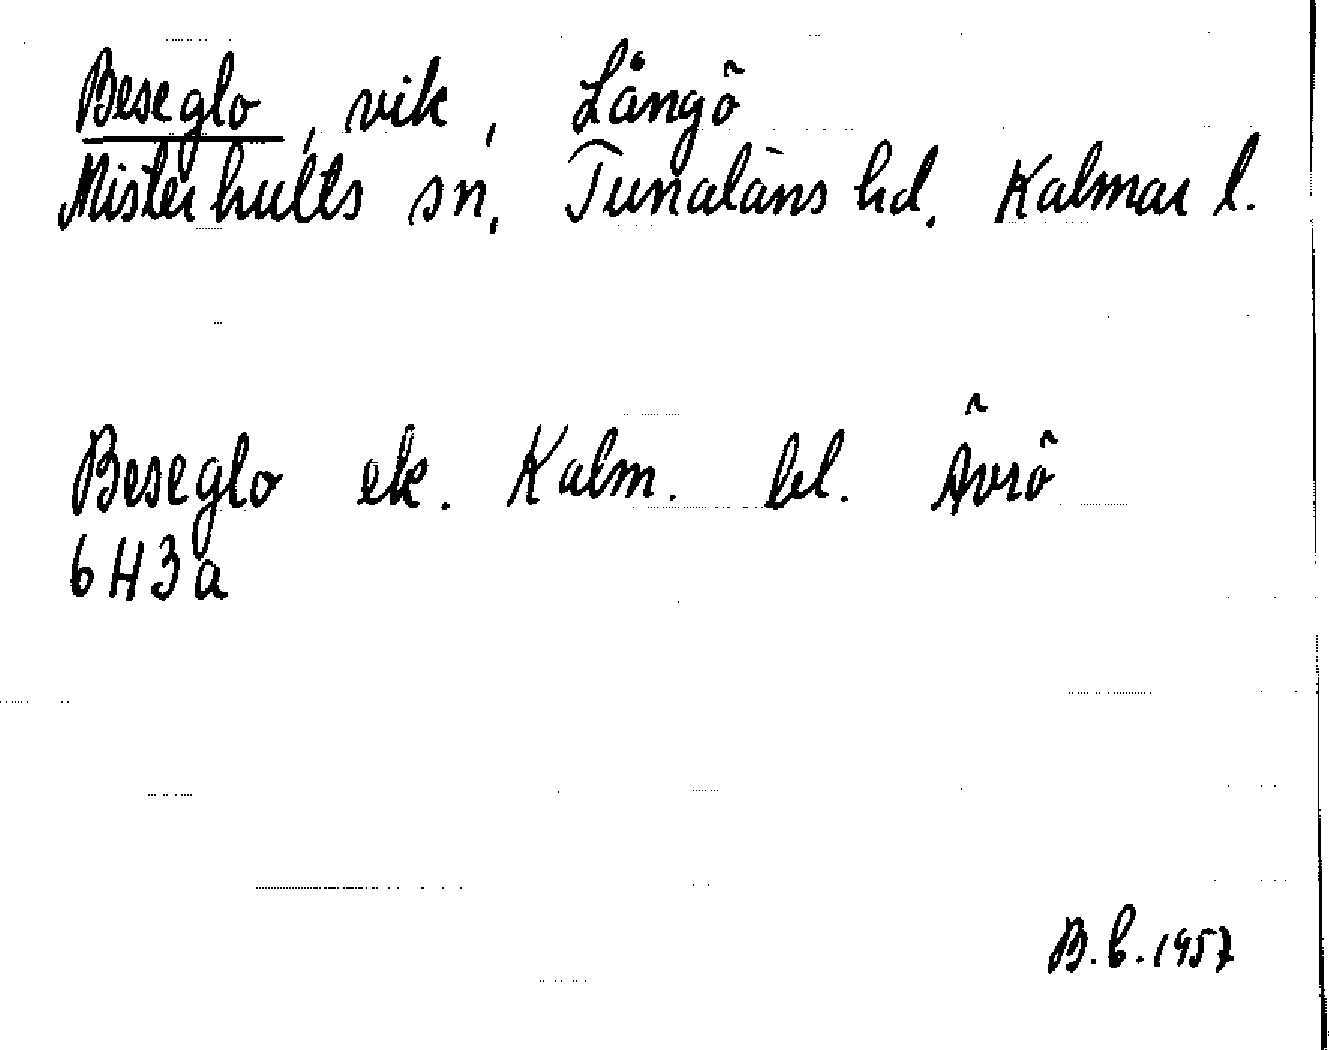 Beseglo, vik, Långö
Misterhults sn. Tunaläns hd. Kalmar l.
Beseglo ek. Kalm. bl. Ävrö
6H3a
B.b.1957